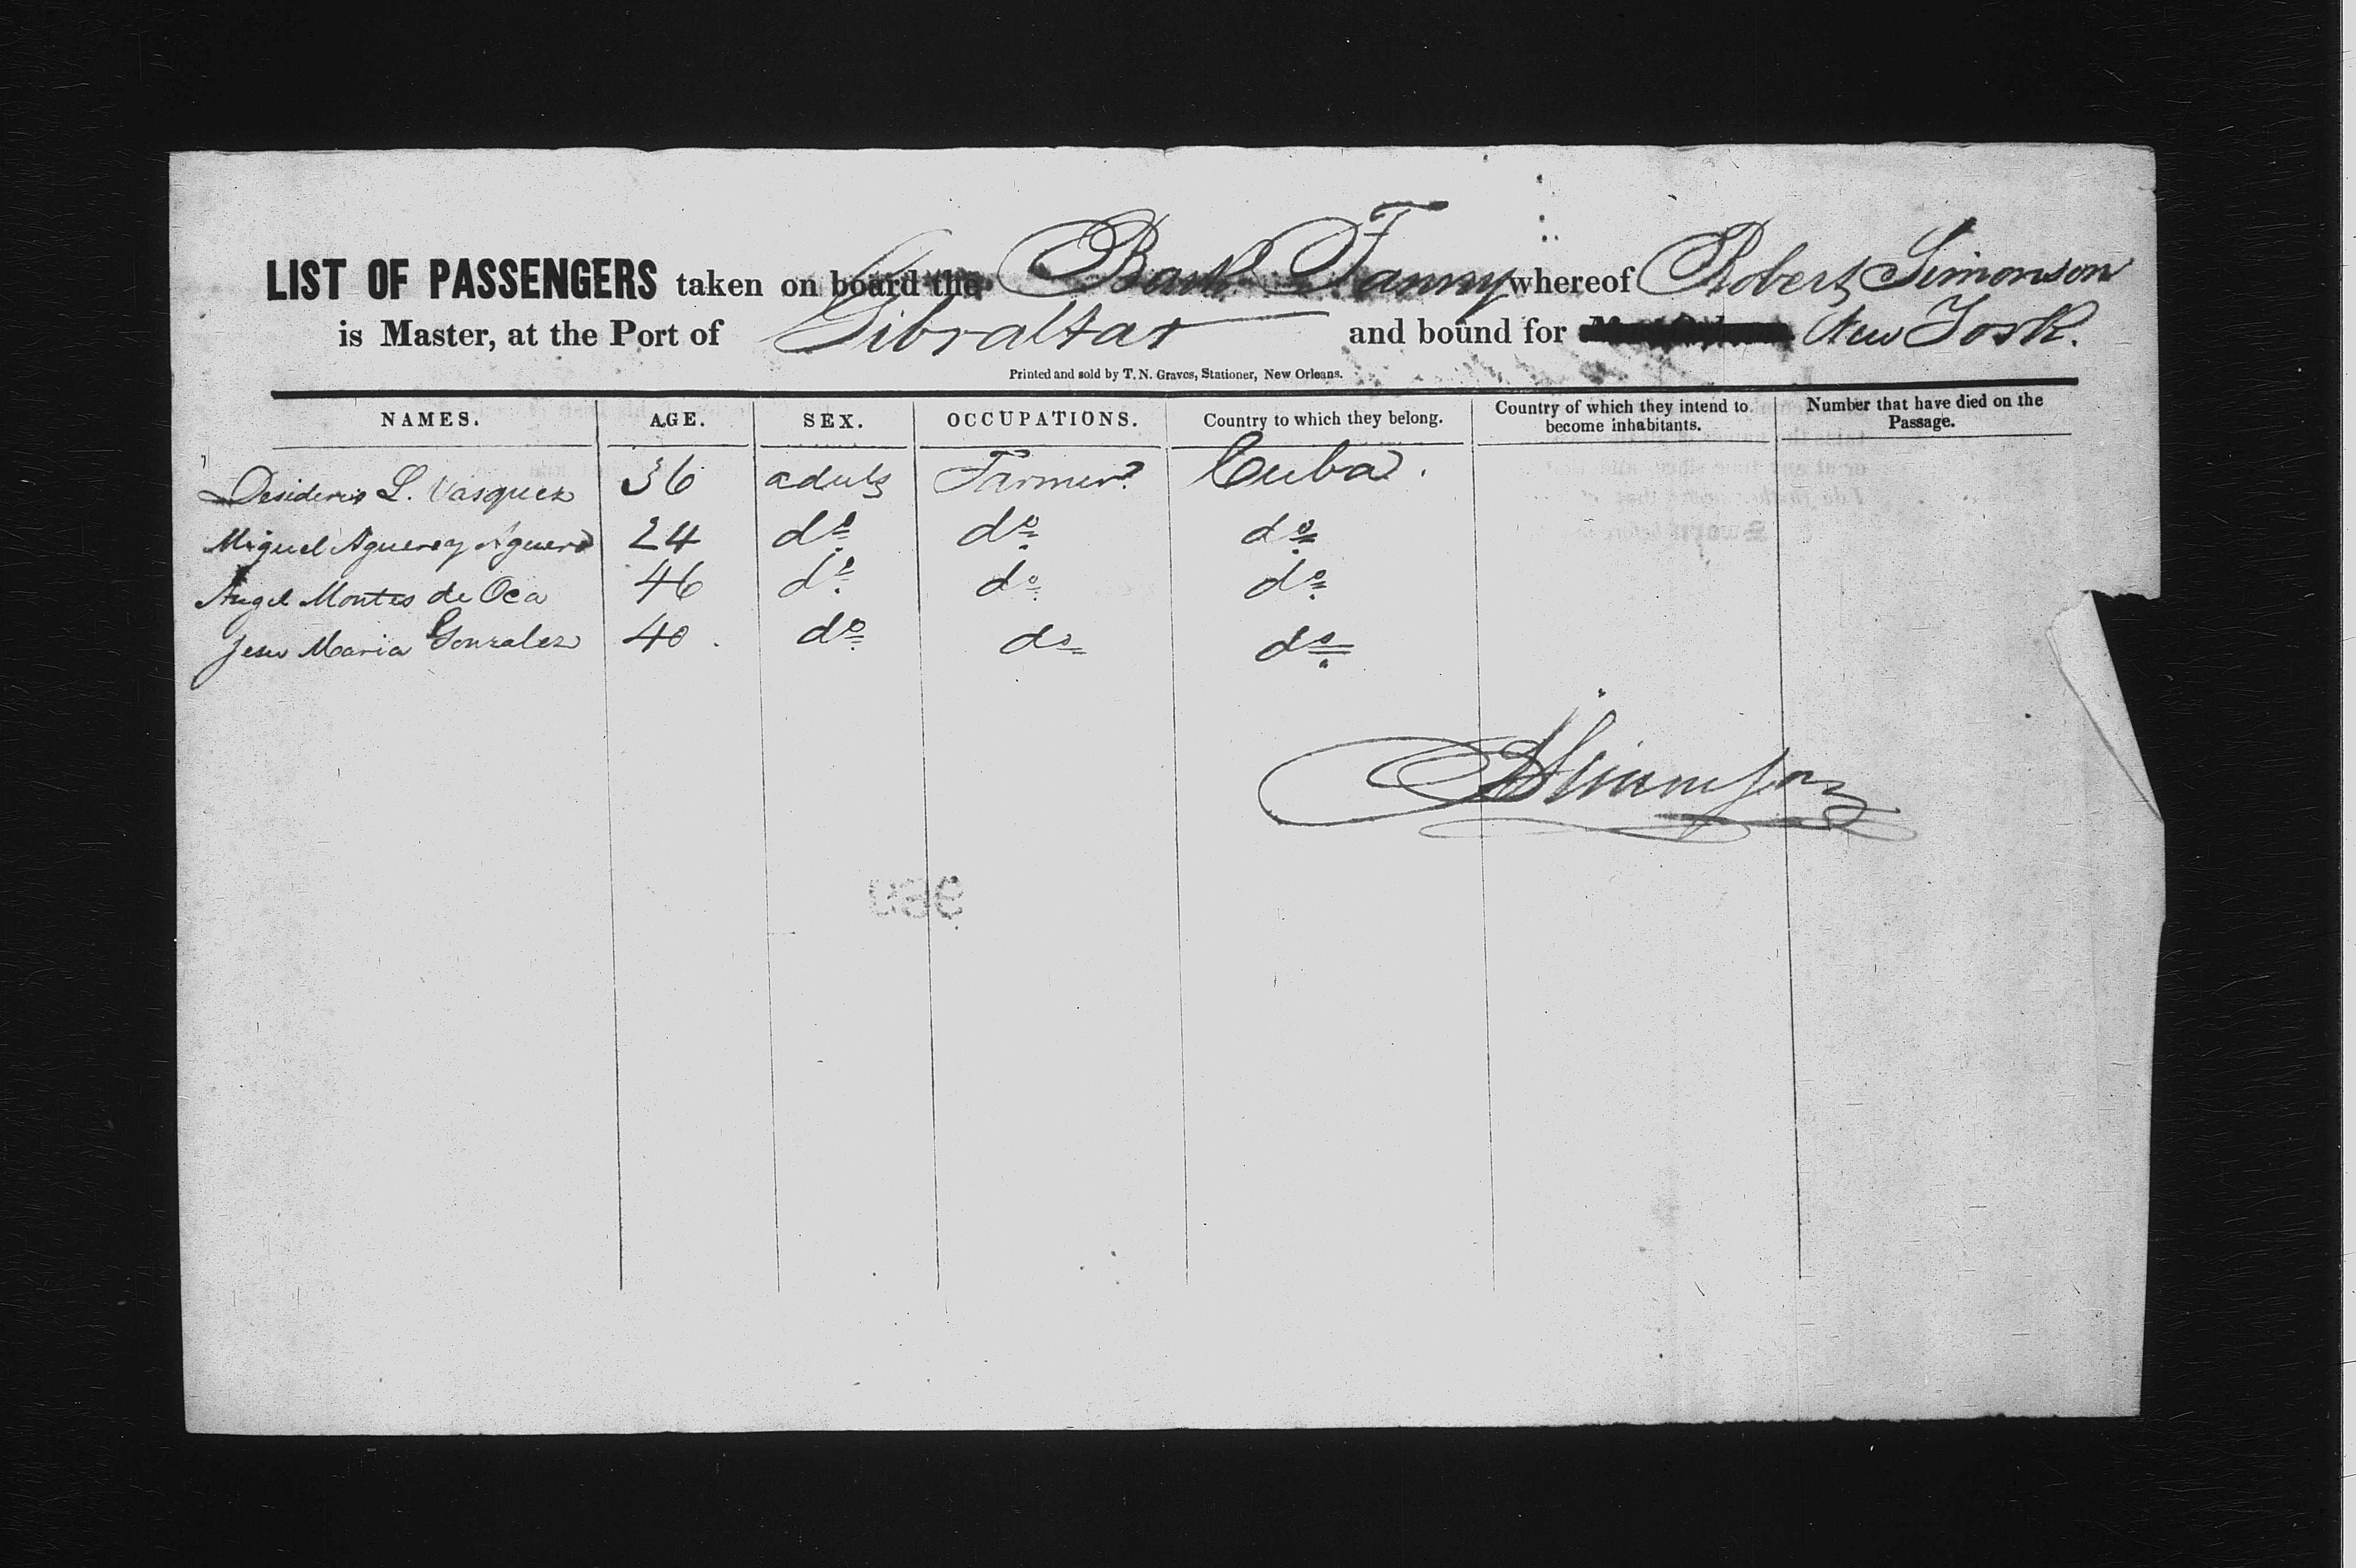 LIST OF PASSENGERS taken on board the Bark Fanny whereof Robert Simonson
is Master, at the Port of Gibraltar and bound for New York.
Printed and sold by T. N. Graves, Stationer, New Orleans.
NAMES. AGE. SEX. OCCUPATIONS. Country to which they belong. Country of which they intend to become inhabitants. Number that have died on the Passage.
Desiderio L. Vasquez 36 adult Farmer Cuba.
Miguel Aguero y Aguero 24 do do do
Angel Montes de Oca 46 do do do
Jesus Maria Gonzalez 40. do do do
R Simonson